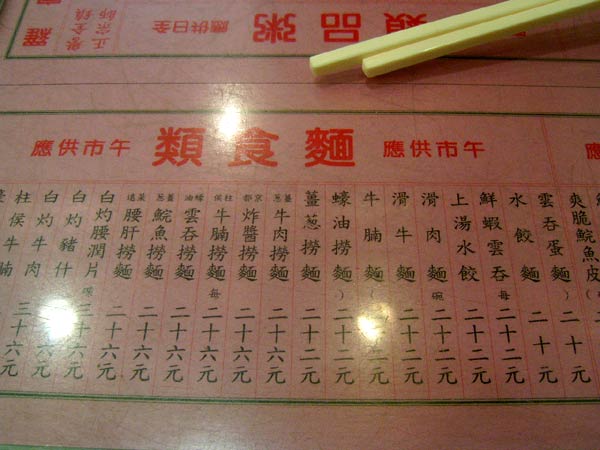 粥品類 全日供應
午市供應 麵食類 午市供應
爽脆鯇魚皮
雲吞蛋麵 ) 二十元
水餃麵 二十元
鮮蝦雲吞 每 二十二元
上湯水餃 二十二元
滑肉麵 碗 二十二元
滑牛麵 二十二元
牛腩麵 ( 二十二元
蠔油撈麵 ) 二十二元
薑葱撈麵 二十二元
薑葱牛肉撈麵 二十六元
京都炸醬撈麵 二十六元
柱侯牛腩撈麵 每 二十六元
蠔油雲吞撈麵 二十六元
薑葱鯇魚撈麵 二十六元
菜遠腰肝撈麵 二十六元
白灼腰潤片 碗 三十六元
白灼豬什 三十六元
白灼牛肉 三十六元
柱侯牛腩 三十六元